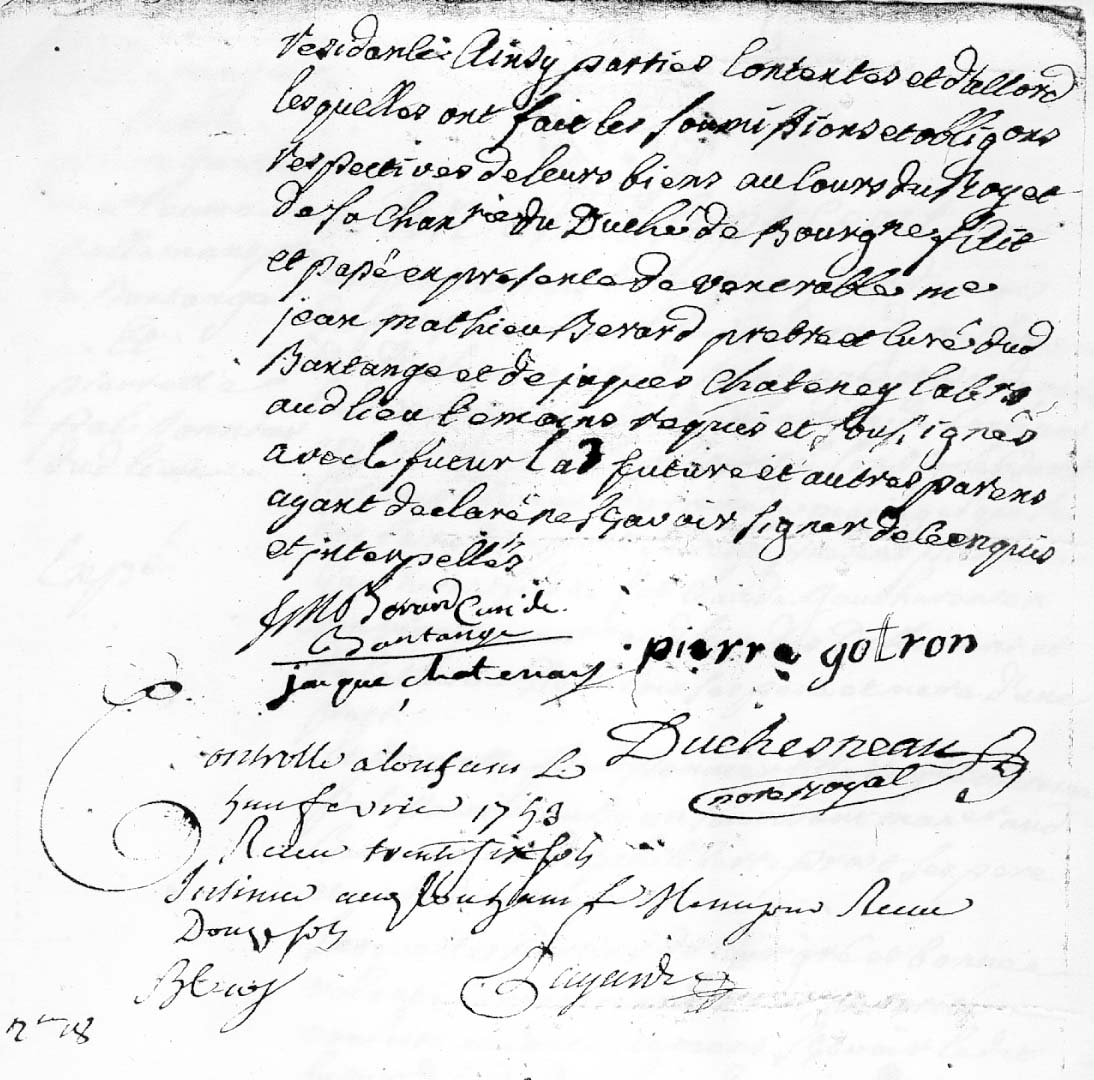 residante Ainsy parties Contentes et d'accord
lesquelles ont fait les soumissions et obligons
respectives de leurs biens au Cours du Roy et
de sa Chanrie du Duché de Bourgne fait
et passé en presence de venerable me
jean mathieu Berard pretre et curé dud
Bantange et de jaques Chatenay labr
aud lieu temoins requis et soussignés
avec le futur la future et autres parens
ayant declaré ne sçavoir signer de ce enquis
et interpellés
JM Berard Curé de
Bantange
pierre gotron
jaque chatenay
Duchesneau
note Royal
Controlle a Louhans le
fevrier 1753
Receu trente six sols
Insinué aud Louhans le Meme jour Receu
Douze sols